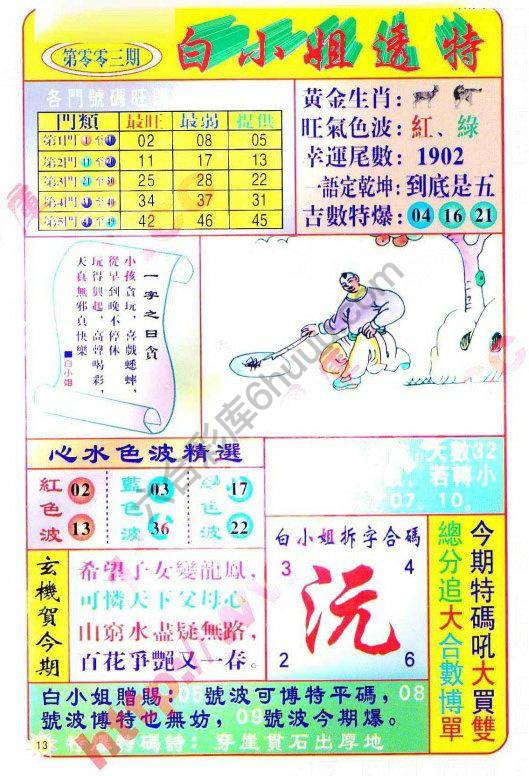 第零零三期
白小姐透特
各門號碼旺
門類 最旺 最弱 提供
第1門 1 至 02 08 05
第2門 11 至 11 17 13
第3門 21 至 30 25 28 22
第4門 31 至 40 34 37 31
第5門 41 至 49 42 46 45
黃金生肖:
旺氣色波:紅、綠
幸運尾數:1902
一語定乾坤:到底是五
吉數特爆:04 16 21
一字之曰貪
小孩貪玩,喜戲蟋蟀,
從早到晚不停休
玩得興起,高聲喝彩,
天真無邪真快樂
■白小姐
心水色波精選
紅色波 02 13
藍色波 03 36
色波 17 22
大數32
若轉小
07.10。
玄機賀今期
希望子女變龍鳳,
可憐天下父母心
山窮水盡疑無路,
百花爭艷又一春。
白小姐拆字合碼
3 4
沅
2 6
今期特碼吼大買雙
總分追大合數博單
白小姐贈賜:05號波可博特平碼,08
號波博特也無妨,09號波今期爆。
特碼詩:穿崖貫石出厚地
13
六合彩库6huu.com
http://